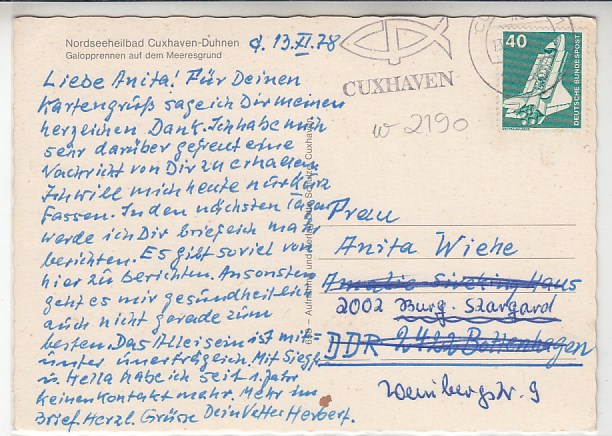 Nordseeheilbad Cuxhaven-Duhnen
Galopprennen auf dem Meeresgrund
d. 13.XI.78
CUXHAVEN
40
DEUTSCHE BUNDESPOST
w 2190
Liebe Anita! Für Deinen
Kartengruß sage ich Dir meinen
herzlichen Dank. Ich habe mich
sehr darüber gefreut eine
Nachricht von Dir zu erhalten
Ich will mich heute nur kurz
fassen. In den nächsten Tagen
werde ich Dir brieflich mehr
berichten. Es gibt soviel von
hier zu berichten. Ansonsten
geht es mir gesundheitlich
auch nicht gerade zum
besten. Das Alleisein ist mit-
unter unerträgeich. Mit Siegfr.
u. Hella habe ich seit 1. Jahr
keinen Kontakt mehr. Mehr im
Brief. Herzl. Grüsse Dein Vetter Herbert.
Frau
Anita Wiehe
Amalie Sieveking Haus
2002 Burg. Stargard
DDR 2422 Boltenhagen
Weinbergstr. 9